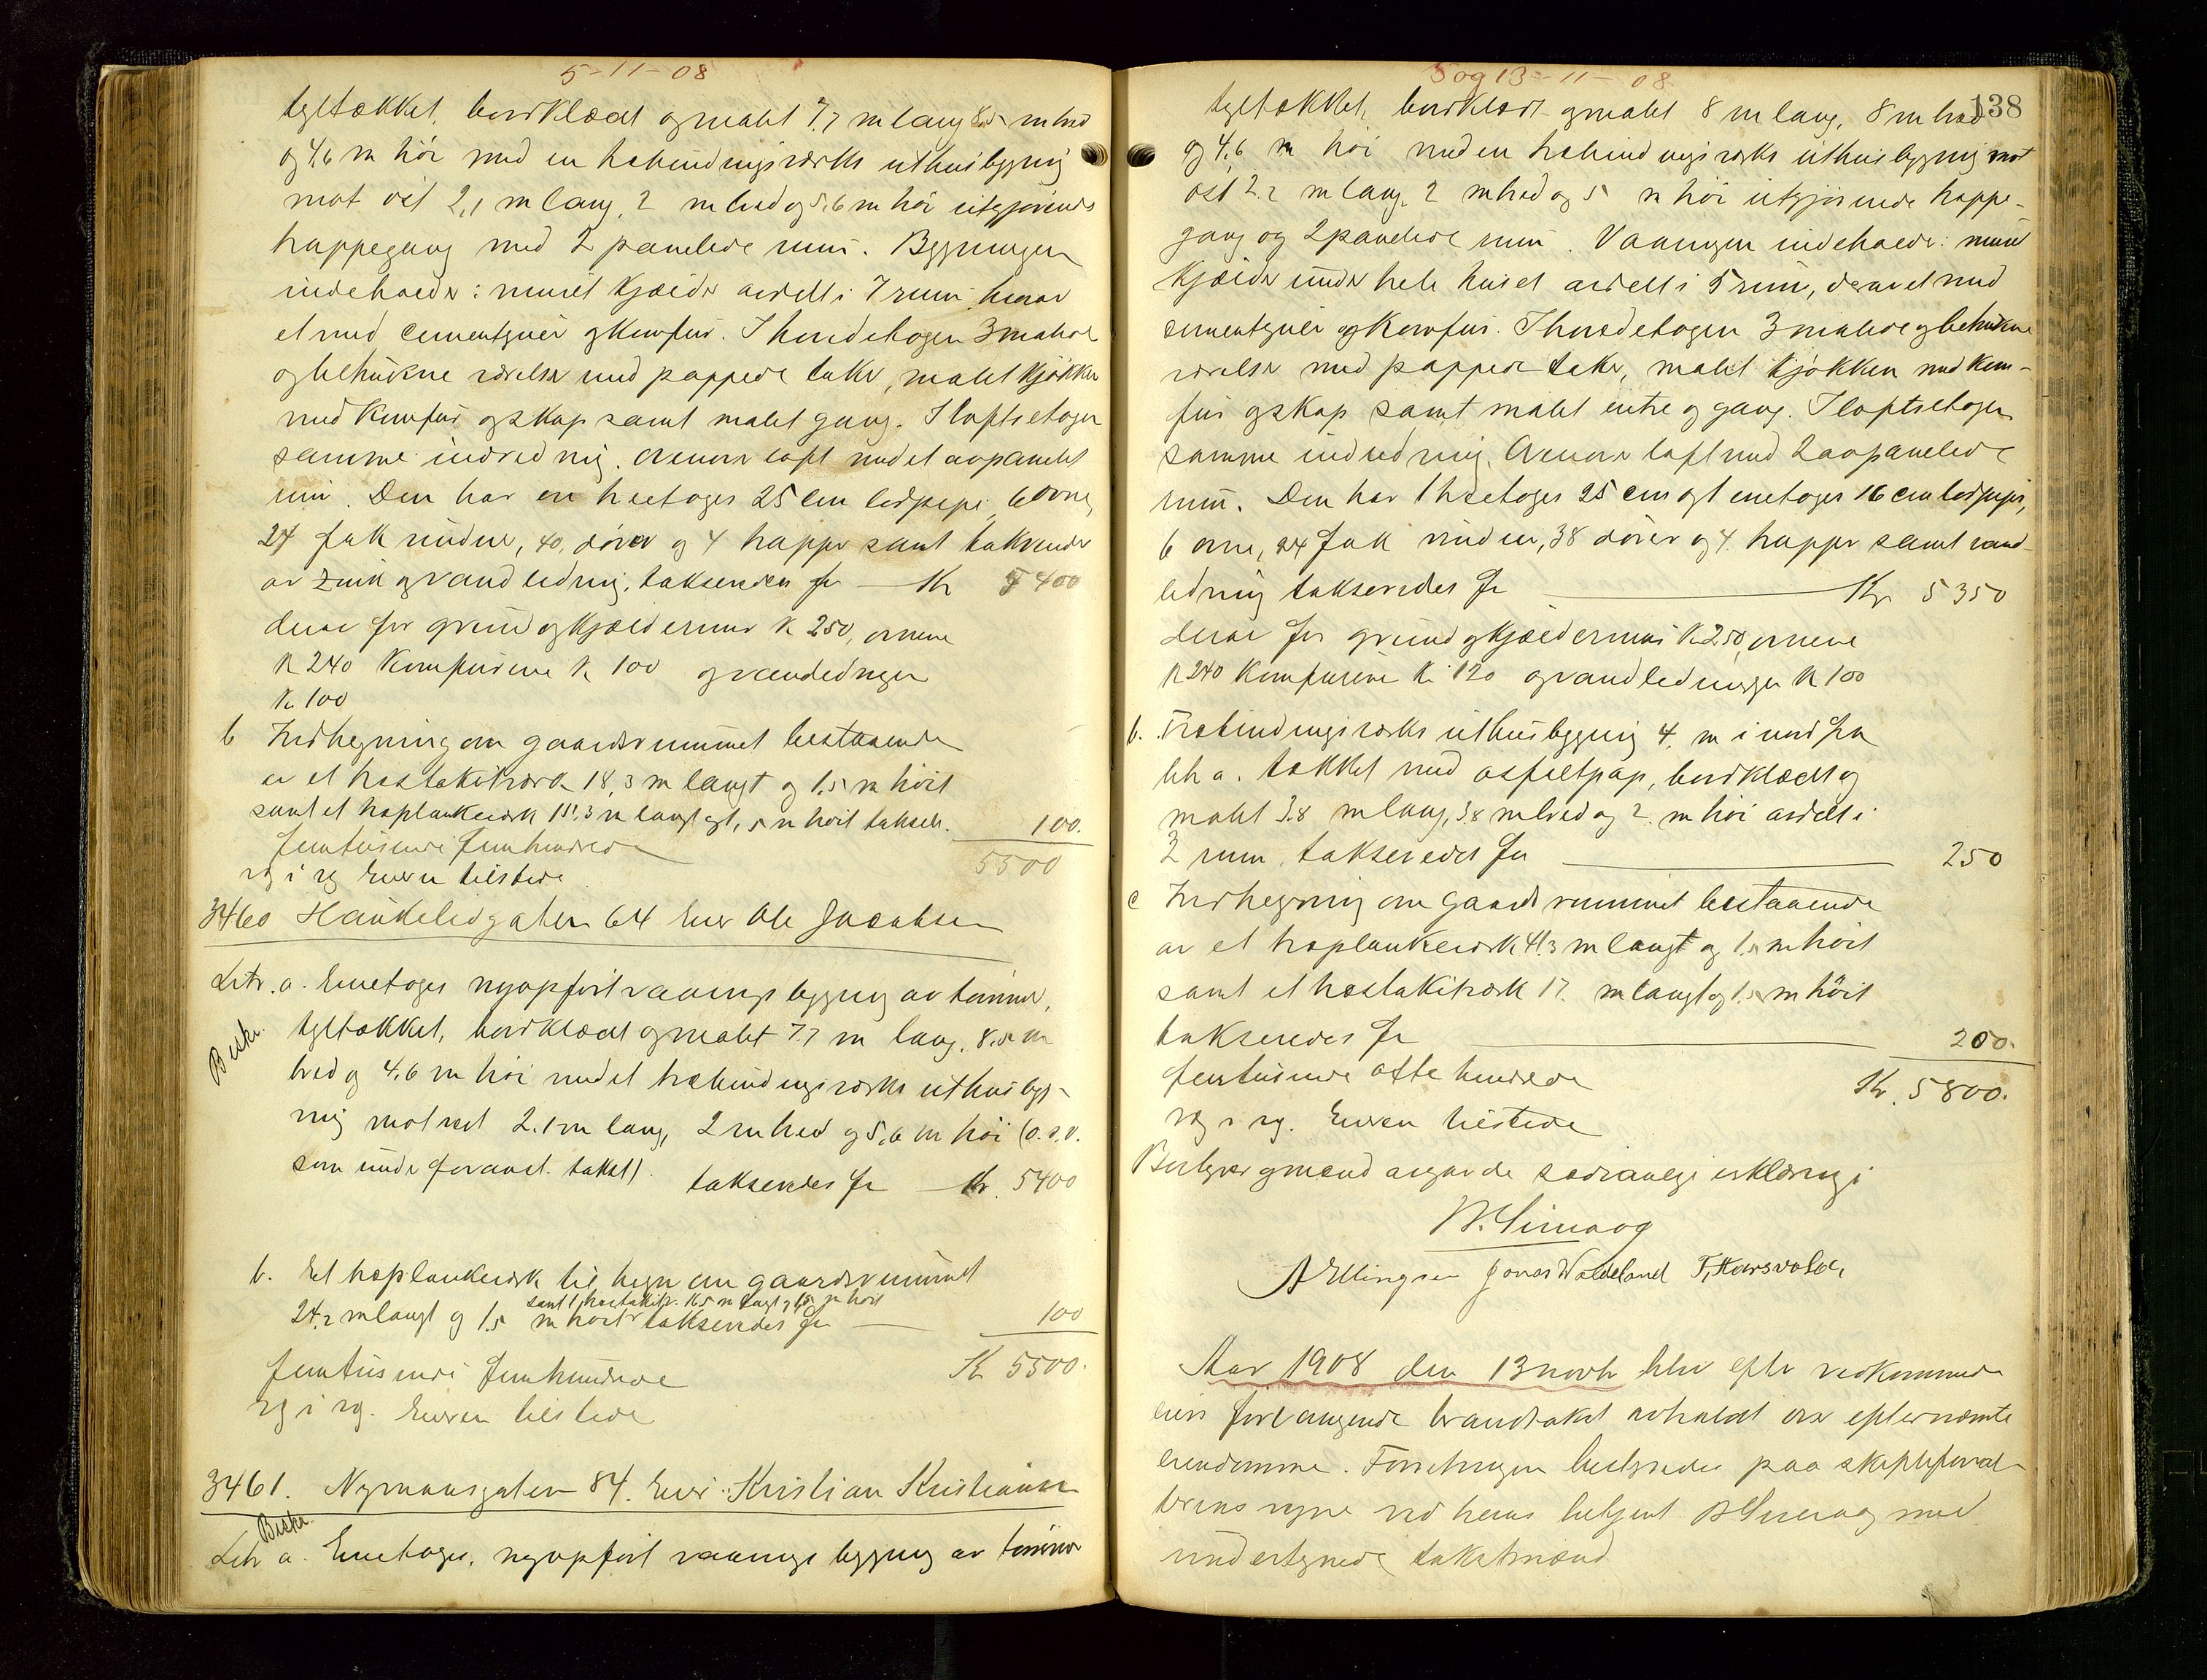 5-11-08
tegltækket, bordklædt og malet 7.7 m lang 8.5 m bred
og 4,6 m høi med en træbindingsværks uthusbygning
mot øst 2,1 m lang, 2 m bred og 5,6 m høi utgjørende
trappegang med 2 panelede rum. Bygningen
indeholder: muret kjælder avdelt i 7 rum hvorav
et med cementgulv og komfur. I hovedetagen 3 malede
og betrukne værelser med pappede taker, malet kjøkken
med komfur og skap samt malet gang. I loftsetagen
samme indredning. Øverste loft med et avpanelet
rum. Den har en treetages 25 cm ledpipe, 6 ovne,
27 fak vinduer, 40 dører og 4 trapper samt takrender
av zink og vandledning, takseredes for — Kr 5400
derav for grund og kjældermur Kr 250, ovnene
Kr 240 komfurene Kr 100 og vandledningen
Kr 100
b Indhegning om gaardsrummet bestaaende
av et træstakitværk 18,3 m langt og 1.5 m høit
samt et træplankeværk 15,3 m langt og 1,5 m høit takseres. 100.
femtusinde femhundrede 5500
Eieren tilstede
3460 Haukeligaten 64 Eier Ole Jacobsen
Litr. a. Enetages nyopført vaaningsbygning av tømmer,
Beskr.
tegltækket, bordklædt og malet 7.7 m lang, 8.5 m
bred og 4,6 m høi med et træbindingsværks uthusbyg-
ning mot vest 2.1 m lang, 2 m bred og 5,6 m høi (o.s.v.
som under foranst. takst). takseredes for — Kr. 5400
b. Et træplankeværk til hegn om gaardsrummet
samt 1 træstakitv. 16.5 m langt og 1,5 m høit
24.2 m langt og 1.5 m høit takseredes for — 100
femtusinde femhundrede Kr 5500.
Eieren tilstede
3461. Nymansgaten 84. Eier: Kristian Kristiansen
Beskr.
Litr a. Enetages, nyopført vaaningsbygning av tømmer
5 og 13-11-08
138
tegltækket, bordklædt og malet 8 m lang, 8 m bred
og 4,6 m høi med en træbindingsværks uthusbygning mot
øst 2.2 m lang, 2 m bred og 5 m høi utgjørende trappe-
gang og 2 panelede rum. Vaaningen indeholder: muret
kjælder under hele huset avdelt i 5 rum, derav et med
cementgulv og komfur. I hovedetagen 3 malede og betrukne
værelser med pappede taker, malet kjøkken med kom-
fur og skap samt malet entre og gang. I loftsetagen
samme indredning. Øverste loft med 2 avpanelede
rum. Den har 1 treetages 25 cm og 1 enetages 16 cm ledpiper,
6 ovne, 24 fak vinduer, 38 dører og 4 trapper samt vand-
ledning takseredes for — Kr 5350
derav for grund og kjældermur Kr 250, ovnene
Kr 240 komfurene Kr 120 og vandledningen Kr 100
b. Træbindingsværks uthusbygning 4. m i nord fra
litr a. tækket med asfaltpap, bordklædt og
malet 3.8 m lang, 3.8 m bred og 2. m høi avdelt i
2 rum, takseredes for — 250
c Indhegning om gaardsrummet bestaaende
av et træplankeværk 41.3 m langt og 1.5 m høit
samt et træstakitværk 17. m langt og 1.5 m høit
takseredes for — 200.
femtusinde otte hundrede Kr. 5800.
Eieren tilstede
Bestyrer og mænd avgav de sedvanlige erklæringer
A Ellingsen Jonas Waldeland T. Horsvold.
Aar 1908 den 13 novbr blev efter vedkommende
eiers forlangende brandtakst avholdt over efternævnte
eiendomme. Forretningen bestyredes paa skifteforval-
terens vegne ved hans betjent med
undertegnede takstmænd